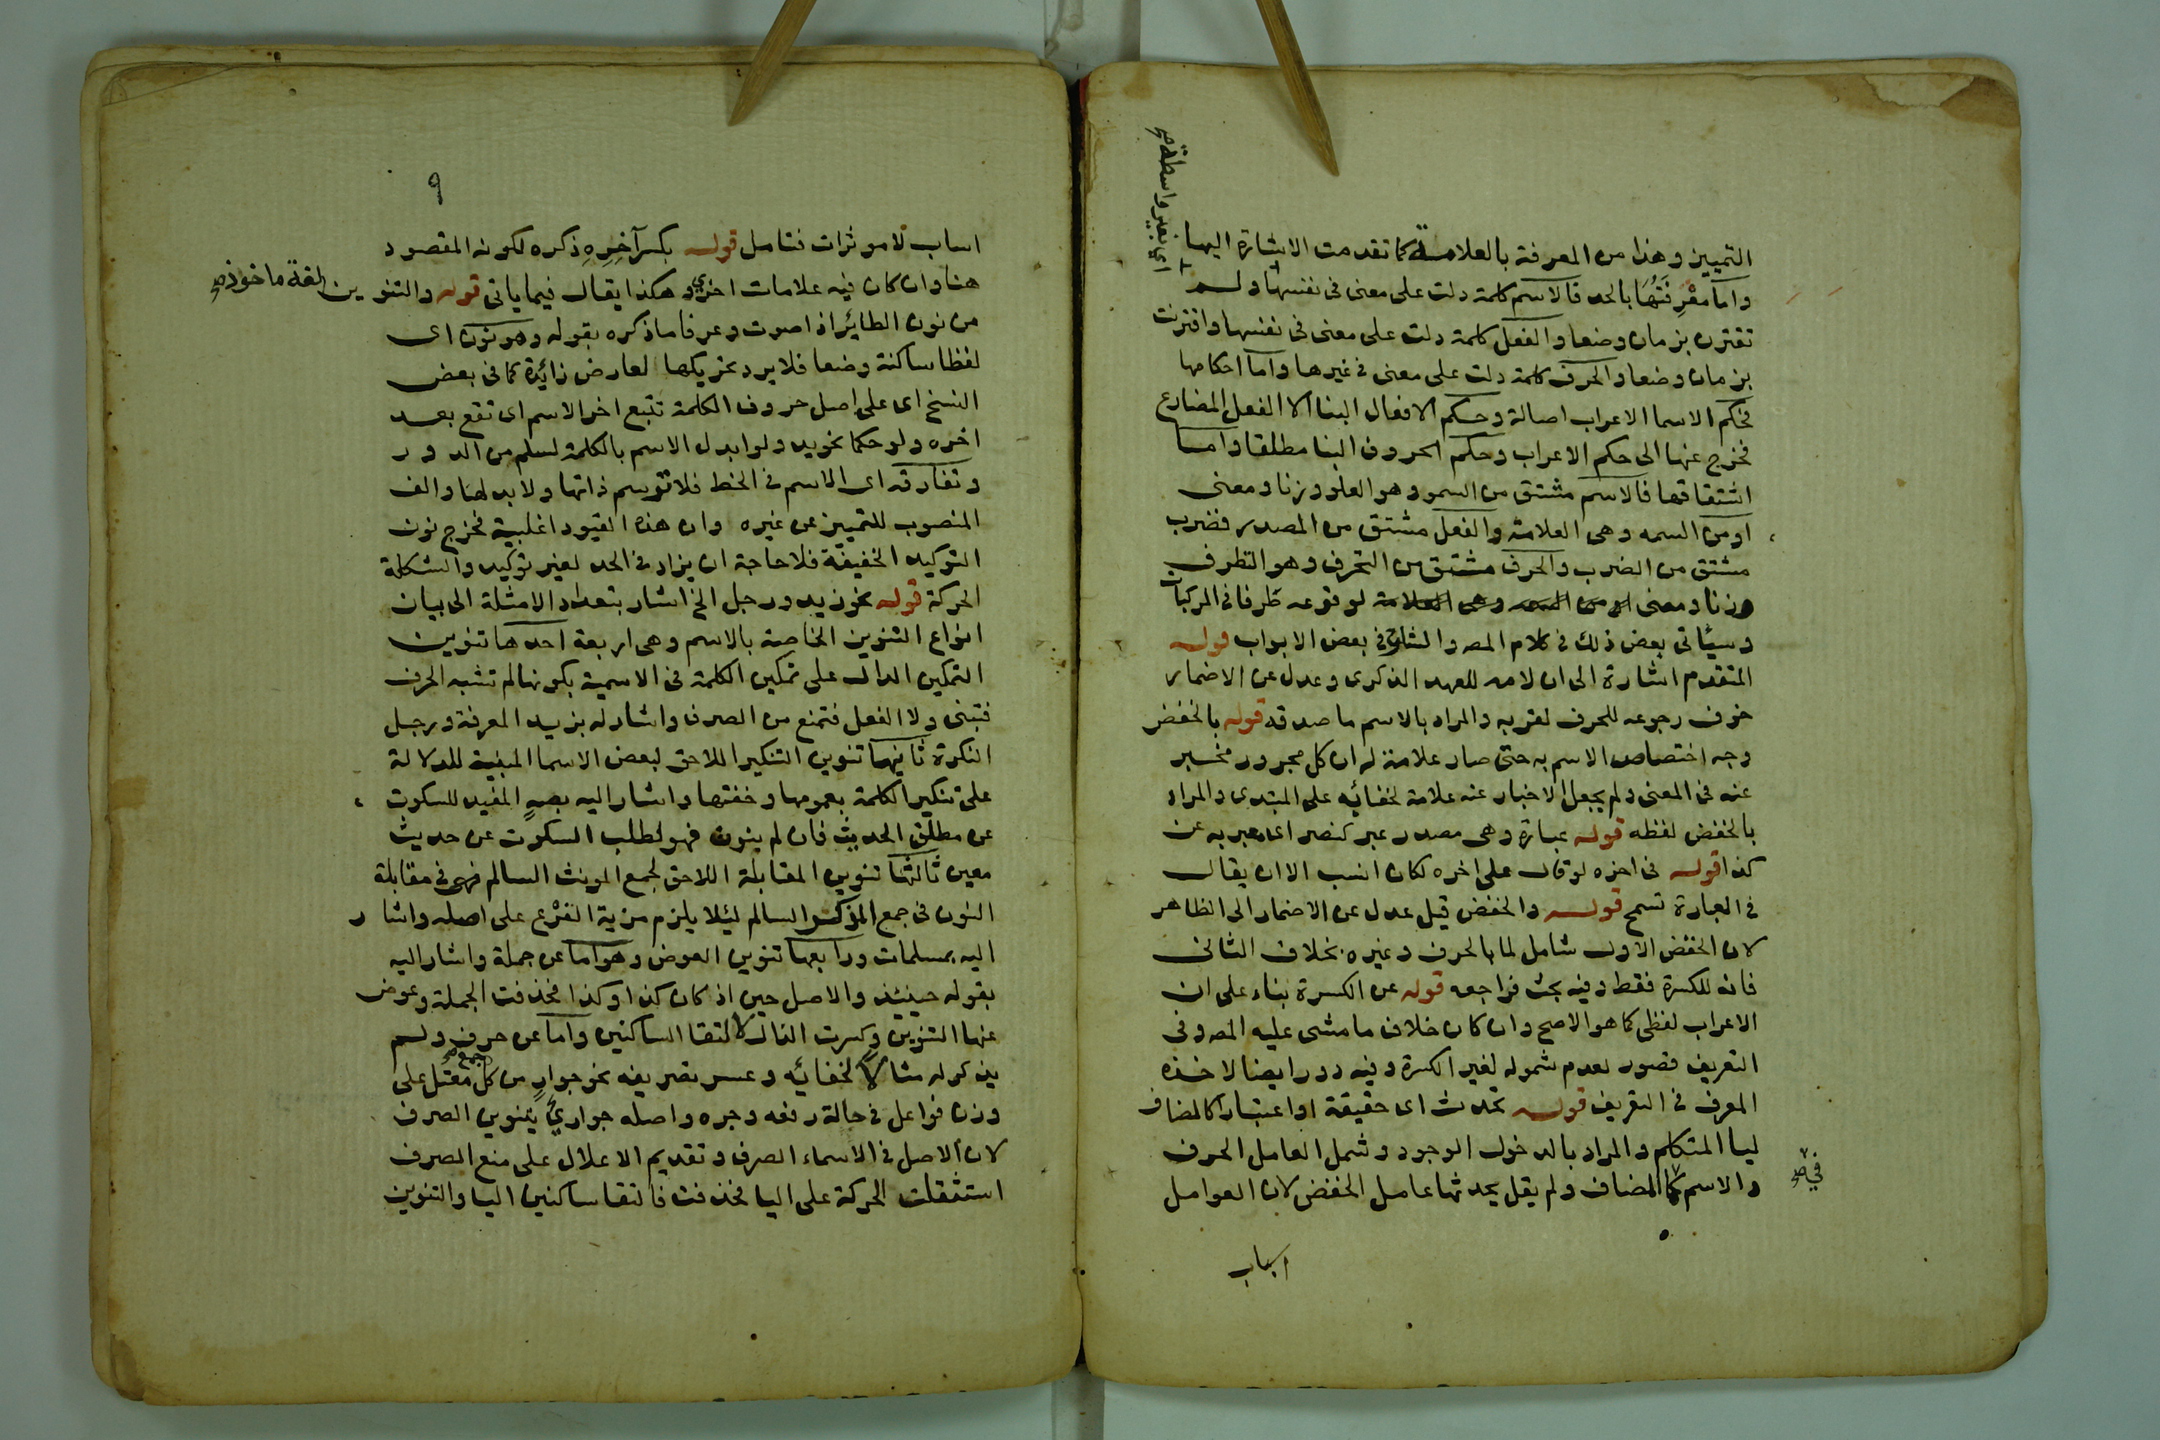 التمييز وهذا من المعرفة بالعلامة كما تقدمت الاشارة اليها
اي بغير واسطة صح
واما معْرِفَتُهَا بالحد فالاسم كلمة دلت على معنى في نفسها ولم
تقترن بزمان وضعا والفعل كلمة دلت على معنى في نفسها واقترنت
بزمان وضعا والحرف كلمة دلت على معنى في غيرها واما احكامها
فحكم الاسما الاعراب اصالة وحكم الافعال البنا الا الفعل المضارع
فخرج عنها الى حكم الاعراب وحكم الحروف البنا مطلقا واما
اشتقاقها فالاسم مشتق من السمو وهو العلو وزنا ومعنى
او من السمه وهى العلامة والفعل مشتق من المصدر فضرب
مشتق من الضرب والحرف مشتق من التحرف وهو التطرف
وزنا ومعنى او من السمه وهى العلامة لوقوعه طرفا في المركبات
وسيأتى بعض ذلك في كلام المصـ والشارح في بعض الابواب قوله
المتقدم اشارة الى ان لامه للعهد الذكرى وعدل عن الاضمار
خوف رجوعه للحرف لقربه والمراد بالاسم ما صدقه قوله بالخفض
وجه اختصاص الاسم به حتى صار علامة له ان كل مجرور مخبر
عنه في المعنى ولم يجعل الاخبار عنه علامة لخفائه على المبتدى والمراد
بالخفض لفظه قوله عبارة وهى مصدر عبر كنصر اى معبر به عن
كذا قوله في اخره لو قال على اخره لكان انسب الا ان يقال
في العبارة تسمح قوله والخفض قيل عدل عن الاضمار الى الظاهر
لان الخفض الاول شامل لما بالحرف وغيره بخلاف الثانى
فانه للكسرة فقط وفيه بحث فراجعه قوله عن الكسرة بناء على ان
الاعراب لفظى كما هو الاصح وان كان خلاف ما مشى عليه المصـ وفى
التعريف قصور لعدم شموله لغير الكسرة وفيه دور ايضا لاخذه
المعرف في التعريف قوله تحدث اى حقيقة او اعتبارا كالمضاف
ليا المتكلم والمراد بالدخول الوجود وشمل العامل الحرف
في صح
والاسم كالمضاف ولم يقل يحدثها عامل الخفض لان العوامل
اسباب
٩
اسباب لا موثرات فتامل قوله بكسر آخِرِهِ ذكره لكونه المقصود
هنا وان كان فيه علامات اخرى وهكذا يقال فيما ياتى قوله والتنوين لغة ماخوذ صح
من نون الطائر اذا صوت وعرفا ما ذكره بقوله وهو نون اى
لفظا ساكنة وضعا فلا يرد تحريكها لعارض زائدة كما في بعض
النسخ اى على اصل حروف الكلمة تتبع اخر الاسم اى تقع بعد
اخره ولو حكما نحو يد ولو ابدل الاسم بالكلمة لسلم من الدور
وتفارقه اى الاسم في الخط فلا ترسم ذاتها ولا بدلها والف
المنصوب للتمييز عن غيره وان هذه القيود اغلبية فخرج نون
التوكيد الخفيفة فلا حاجة ان يزاد في الحد لغير توكيد والشكلة
الحركة قوله نحو زيد ورجل الخ اشار بتعداد الامثلة الى بيان
انواع التنوين الخاصة بالاسم وهى اربعة احدها تنوين
التمكين الدال على تمكين الكلمة في الاسمية بكونها لم تشبه الحرف
فتبنى ولا الفعل فتمنع من الصرف واشار له بزيد المعرفة ورجل
النكرة ثانيها تنوين التنكير اللاحق لبعض الاسما المبنية للدلالة
على تنكير الكلمة بعمومها وخفتها واشار اليه بصهٍ المفيد للسكوت
عن مطلق الحديث فان لم ينون فهو لطلب السكوت عن حديث
معين ثالثها تنوين المقابلة اللاحق لجمع المونث السالم فهى في مقابلة
النون في جمع المذكر السالم ليلا يلزم مزية الفَرْع على اصله واشار
اليه بمسلمات ورابعها تنوين العوض وهو اما عن جملة واشار اليه
بقوله حينئذ والاصل حين اذ كان كذا وكذا فحذفت الجملة وعوض
عنها التنوين وكسرت الذال لالتقا الساكنين واما عن حرف ولم
يذكر له مثالا لخفائه وعسر تصريفه نحو جوارٍ من كل جمع صح معتل على
وزن فواعل في حالة رفعه وجره واصله جواريٌ بتنوين الصرف
لان الاصل في الاسماء الصرف وتقديم الاعلال على منع الصرف
استثقلت الحركة على اليا فحذفت فالتقا ساكنين اليا والتنوين